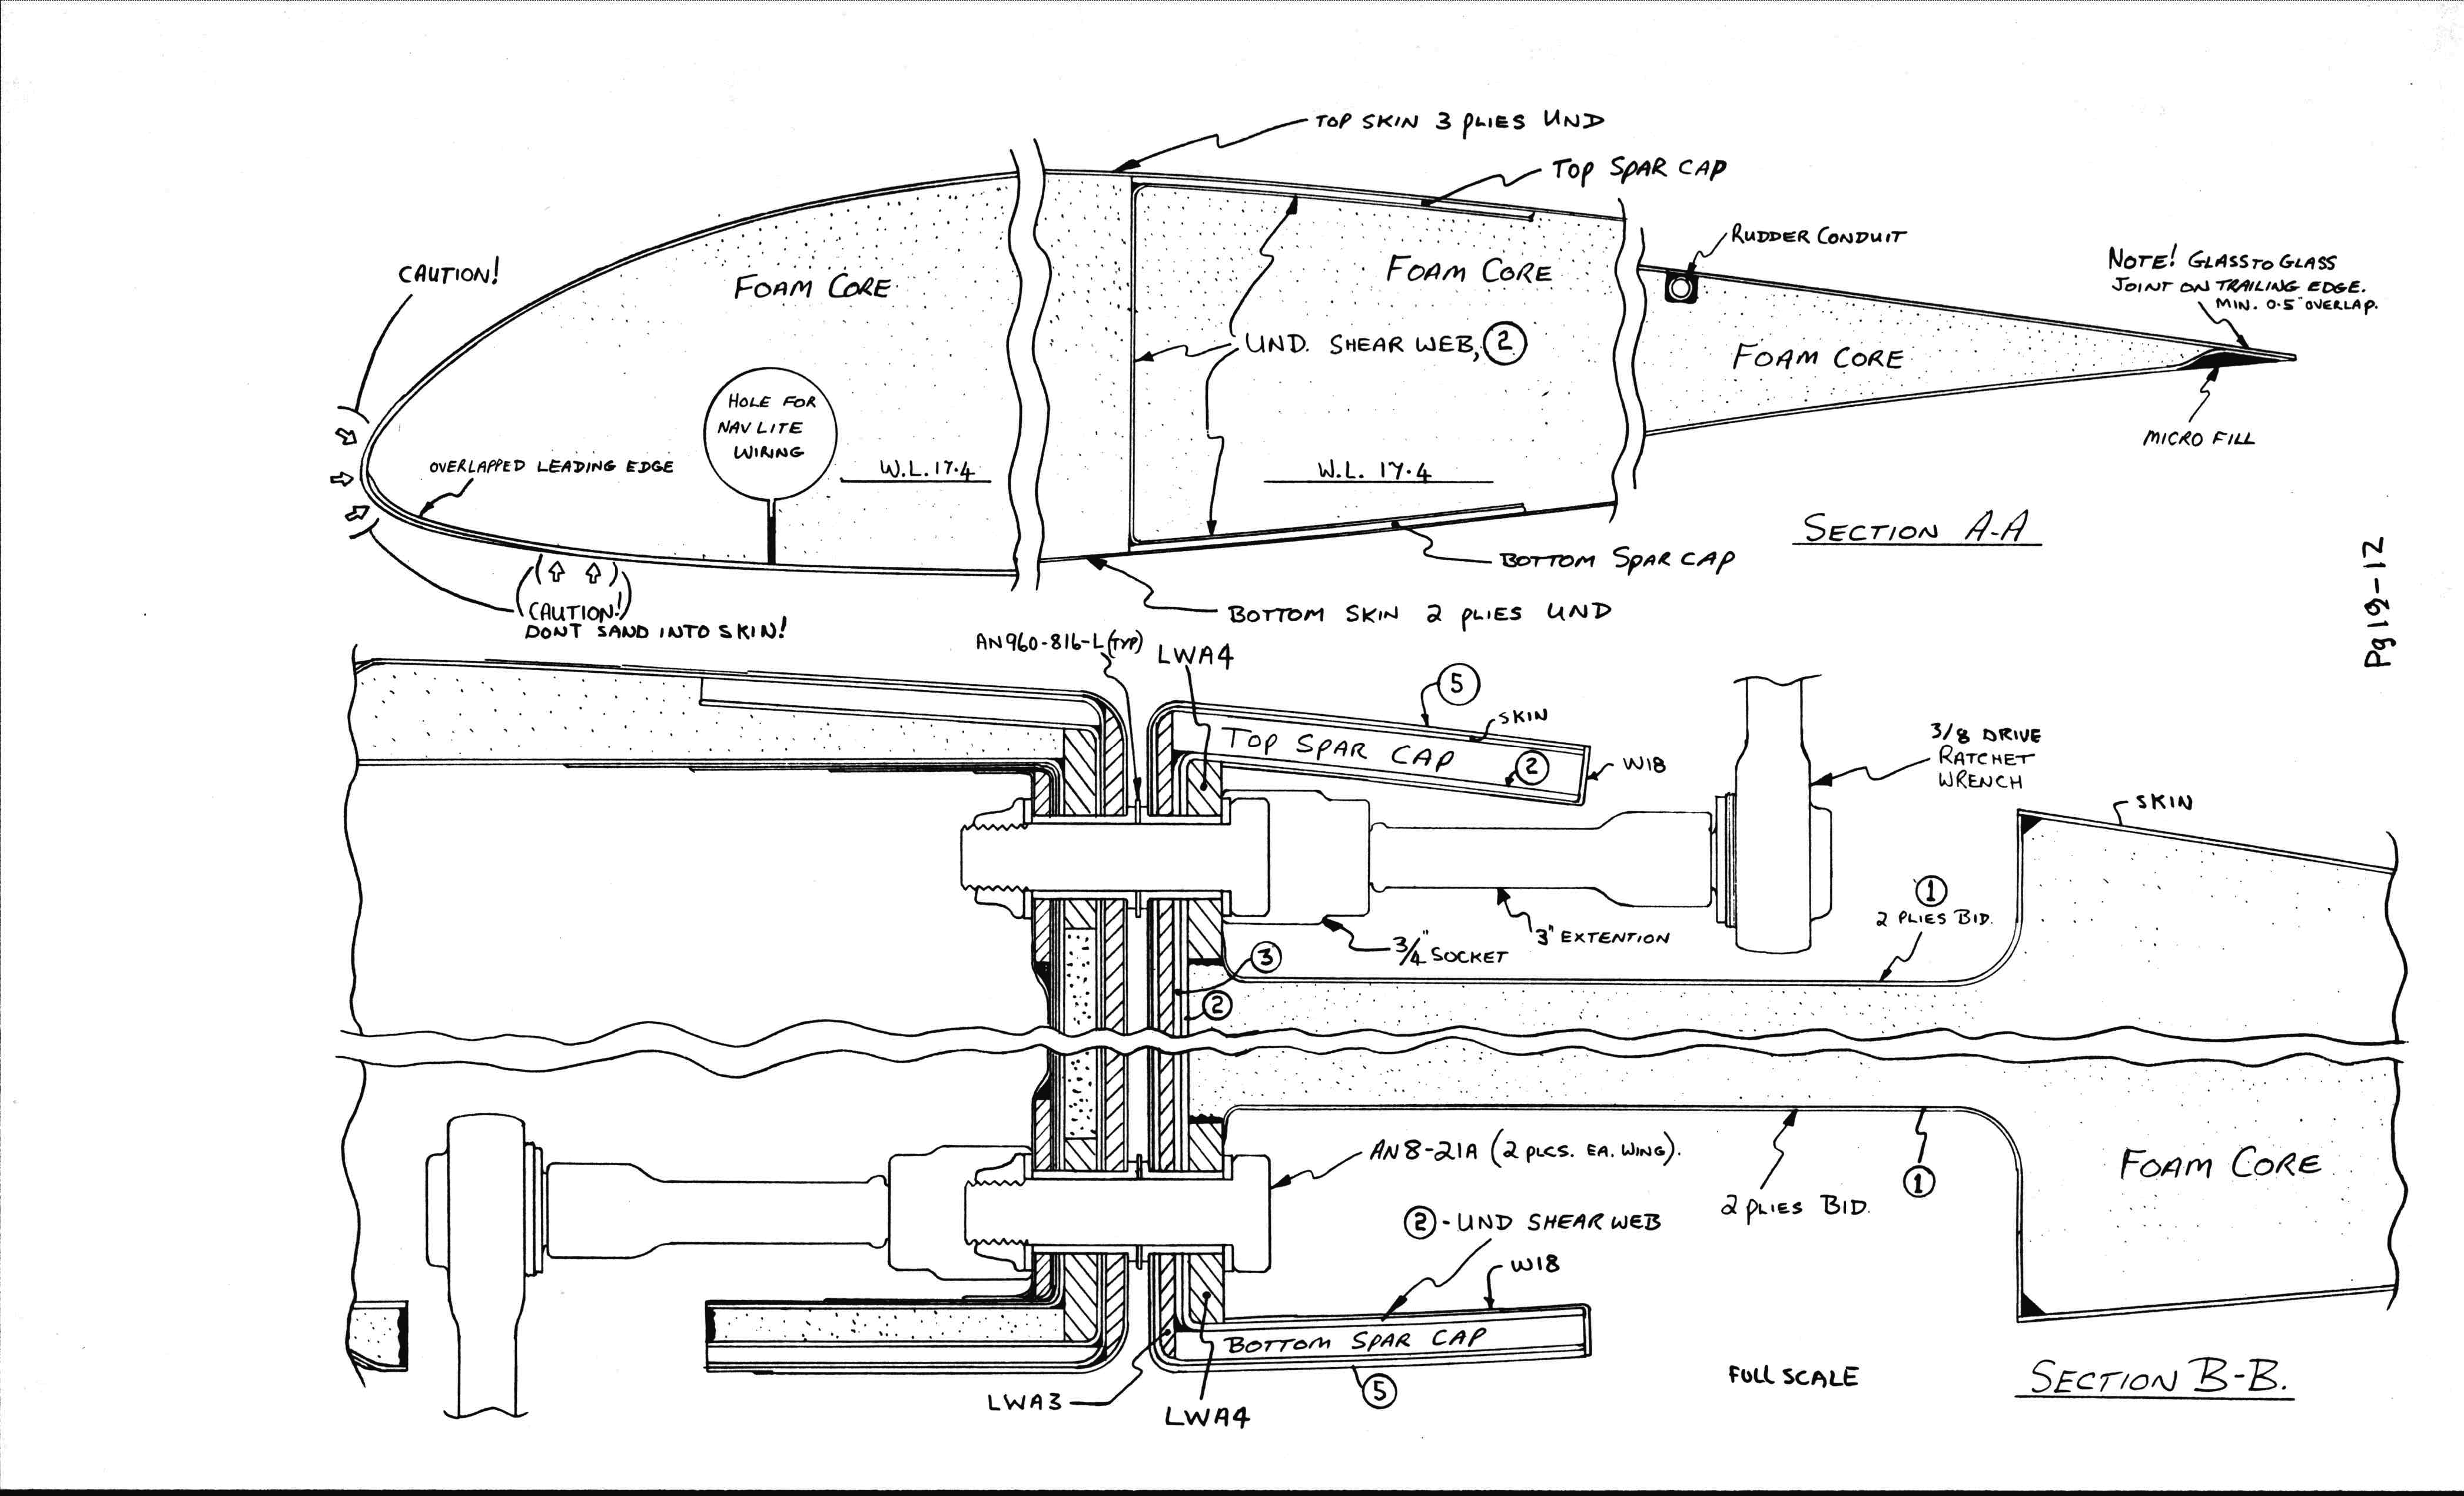 TOP SKIN 3 PLIES UND
TOP SPAR CAP
RUDDER CONDUIT
NOTE! GLASS TO GLASS
JOINT ON TRAILING EDGE.
MIN. 0.5" OVERLAP.
CAUTION!
FOAM CORE
FOAM CORE
UND. SHEAR WEB, 2
FOAM CORE
HOLE FOR
NAV LITE
WIRING
OVERLAPPED LEADING EDGE
W.L. 17.4
W.L. 17.4
MICRO FILL
SECTION A-A
BOTTOM SPAR CAP
(CAUTION!)
DONT SAND INTO SKIN!
BOTTOM SKIN 2 PLIES UND
Pg 19-12
AN960-816-L (TYP)
LWA4
5
SKIN
TOP SPAR CAP
2
W18
3/8 DRIVE
RATCHET
WRENCH
SKIN
1
2 PLIES BID.
3/4" SOCKET
3" EXTENTION
3
2
AN8-21A (2 PLCS. EA. WING).
FOAM CORE
1
2 PLIES BID.
2 - UND SHEAR WEB
W18
BOTTOM SPAR CAP
5
LWA3
LWA4
FULL SCALE
SECTION B-B.